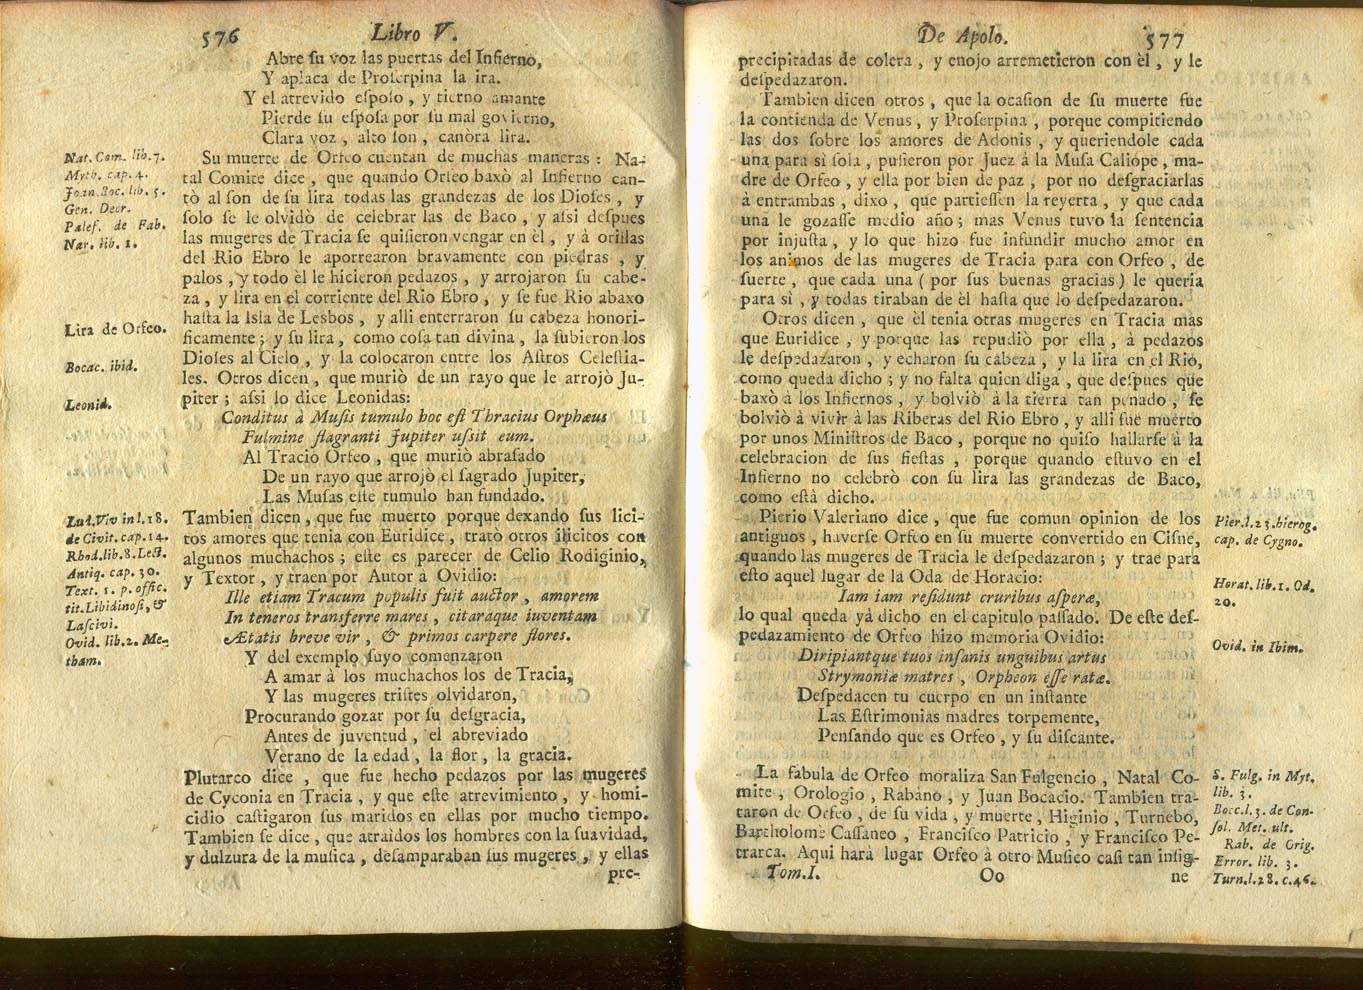 576 Libro V.
Abre ſu voz las puertas del Infierno,
Y aplaca de Proſerpina la ira.
Y el atrevido eſpoſo, y tierno amante
Pierde ſu eſpoſa por ſu mal govierno,
Clara voz, alto ſon, canòra lira.
Nat. Com. lib. 7.
Myth. cap. 4.
Joan. Boc. lib. 5.
Gen. Deor.
Palef. de Fab.
Nar. lib. 1.
Su muerte de Orfeo cuentan de muchas maneras: Na-
tal Comite dice, que quando Orfeo baxò al Infierno can-
tò al ſon de ſu lira todas las grandezas de los Dioſes, y
ſolo ſe le olvidò de celebrar las de Baco, y aſsi deſpues
las mugeres de Tracia ſe quiſieron vengar en èl, y à orillas
del Rio Ebro le aporrearon bravamente con piedras, y
palos, y todo èl le hicieron pedazos, y arrojaron ſu cabe-
za, y lira en el corriente del Rio Ebro, y ſe fue Rio abaxo
haſta la Isla de Lesbos, y alli enterraron ſu cabeza honori-
Lira de Orfeo.
ficamente; y ſu lira, como coſa tan divina, la ſubieron los
Dioſes al Cielo, y la colocaron entre los Aſtros Celeſtia-
Bocac. ibid.
les. Otros dicen, que muriò de un rayo que le arrojò Ju-
Leonid.
piter; aſsi lo dice Leonidas:
Conditus à Muſis tumulo hoc eſt Thracius Orphæus
Fulmine flagranti Jupiter uſsit eum.
Al Tracio Orfeo, que muriò abraſado
De un rayo que arrojò el ſagrado Jupiter,
Las Muſas eſte tumulo han fundado.
Lud. Viv in l. 18.
de Civit. cap. 14.
Rhod. lib. 8. Lect.
Antiq. cap. 30.
Text. 1. p. offic.
tit. Libidinoſi, &
Laſcivi.
Ovid. lib. 2. Me-
tham.
Tambien dicen, que fue muerto porque dexando ſus lici-
tos amores que tenia con Euridice, tratò otros ilicitos con
algunos muchachos; eſte es parecer de Celio Rodiginio,
y Textor, y traen por Autor à Ovidio:
Ille etiam Tracum populis fuit auctor, amorem
In teneros transferre mares, citaraque iuventam
Ætatis breve vir, & primos carpere flores.
Y del exemplo ſuyo comenzaron
A amar à los muchachos los de Tracia,
Y las mugeres triſtes olvidaron,
Procurando gozar por ſu deſgracia,
Antes de juventud, el abreviado
Verano de la edad, la flor, la gracia.
Plutarco dice, que fue hecho pedazos por las mugeres
de Cyconia en Tracia, y que eſte atrevimiento, y homi-
cidio caſtigaron ſus maridos en ellas por mucho tiempo.
Tambien ſe dice, que atraidos los hombres con la ſuavidad,
y dulzura de la muſica, deſamparaban ſus mugeres, y ellas
pre-
De Apolo. 577
precipitadas de colera, y enojo arremetieron con èl, y le
deſpedazaron.
Tambien dicen otros, que la ocaſion de ſu muerte fue
la contienda de Venus, y Proſerpina, porque compitiendo
las dos ſobre los amores de Adonis, y queriendole cada
una para sì ſola, puſieron por Juez à la Muſa Caliópe, ma-
dre de Orfeo, y ella por bien de paz, por no deſgraciarlas
à entrambas, dixo, que partieſſen la reyerta, y que cada
una le gozaſſe medio año; mas Venus tuvo la ſentencia
por injuſta, y lo que hizo fue infundir mucho amor en
los animos de las mugeres de Tracia para con Orfeo, de
ſuerte, que cada una (por ſus buenas gracias) le queria
para sì, y todas tiraban de èl haſta que lo deſpedazaron.
Otros dicen, que èl tenia otras mugeres en Tracia mas
que Euridice, y porque las repudiò por ella, à pedazos
le deſpedazaron, y echaron ſu cabeza, y la lira en el Rio,
como queda dicho; y no falta quien diga, que deſpues que
baxò à los Infiernos, y bolviò à la tierra tan penado, ſe
bolviò à vivir à las Riberas del Rio Ebro, y alli fue muerto
por unos Miniſtros de Baco, porque no quiſo hallarſe à la
celebracion de ſus fieſtas, porque quando eſtuvo en el
Infierno no celebrò con ſu lira las grandezas de Baco,
como eſtà dicho.
Pierio Valeriano dice, que fue comun opinion de los
antiguos, haverſe Orfeo en ſu muerte convertido en Ciſne,
quando las mugeres de Tracia le deſpedazaron; y trae para
eſto aquel lugar de la Oda de Horacio:
Pier. l. 23. hierog.
cap. de Cygno.
Horat. lib. 1. Od.
20.
Iam iam reſidunt cruribus aſperæ,
lo qual queda yà dicho en el capitulo paſſado. De eſte deſ-
pedazamiento de Orfeo hizo memoria Ovidio:
Ovid. in Ibim.
Diripiantque tuos inſanis unguibus artus
Strymoniæ matres, Orpheon eſſe ratæ.
Deſpedacen tu cuerpo en un inſtante
Las Eſtrimonias madres torpemente,
Penſando que es Orfeo, y ſu diſcante.
La fabula de Orfeo moraliza San Fulgencio, Natal Co-
mite, Orologio, Rabano, y Juan Bocacio. Tambien tra-
taron de Orfeo, de ſu vida, y muerte, Higinio, Turnebo,
Bartholomè Caſſaneo, Franciſco Patricio, y Franciſco Pe-
trarca. Aqui harà lugar Orfeo à otro Muſico caſi tan inſig-
S. Fulg. in Myt.
lib. 3.
Bocc. l. 3. de Con-
ſol. Met. ult.
Rab. de Orig.
Error. lib. 3.
Turn. l. 28. c. 46.
Tom. I. Oo ne